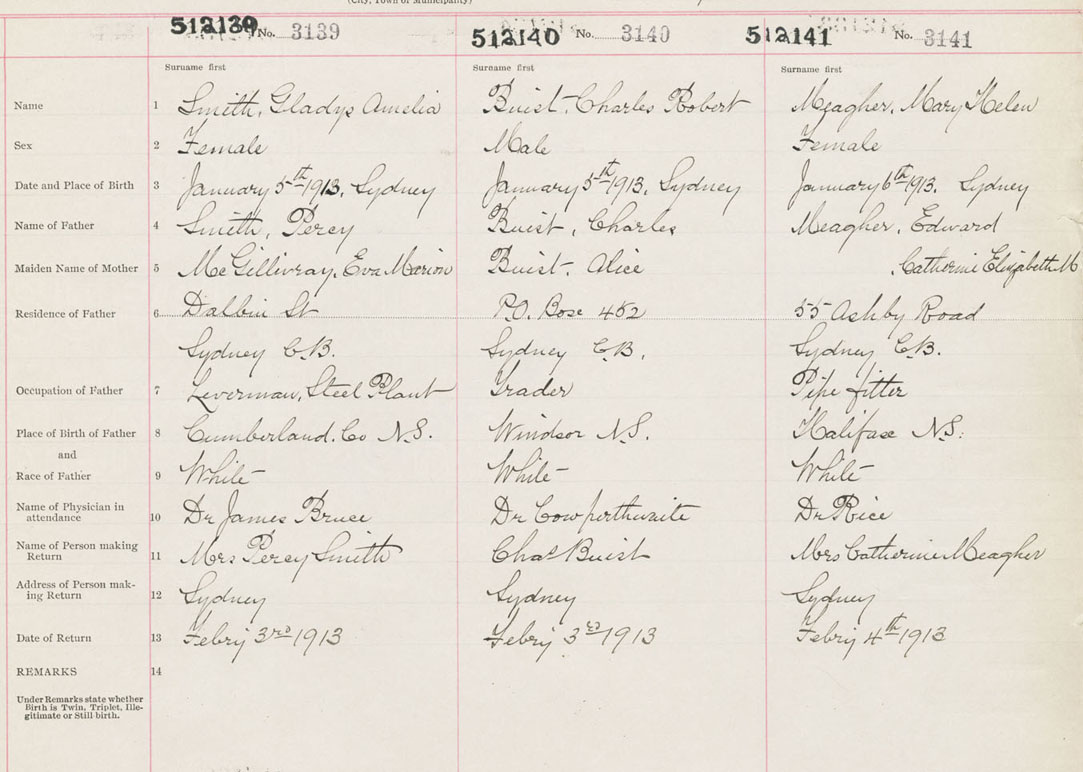 (City, Town or Municipality)
512139 No. 3139 512140 No. 3140 512141 No. 3141
Surname first Surname first Surname first
Name 1 Smith, Gladys Amelia Buist, Charles Robert Meagher, Mary Helen
Sex 2 Female Male Female
Date and Place of Birth 3 January 5th 1913, Sydney January 5th 1913, Sydney January 6th 1913. Sydney
Name of Father 4 Smith, Percy Buist, Charles Meagher, Edward
Maiden Name of Mother 5 McGillivray, Eva Marion Buist, Alice , Catherine Elizabeth M
Residence of Father 6 St P.O. Box 452 55 Ashby Road
Sydney C.B. Sydney C.B. Sydney C.B.
Occupation of Father 7 Leverman, Steel Plant Trader Pipe fitter
Place of Birth of Father 8 Cumberland. Co N.S. Windsor N.S. Halifax N.S.
and
Race of Father 9 White White White
Name of Physician in
attendance 10 Dr James Bruce Dr Cowperthwaite Dr Rice
Name of Person making
Return 11 Mrs Percy Smith Chas Buist Mrs Catherine Meagher
Address of Person mak-
ing Return 12 Sydney Sydney Sydney
Date of Return 13 Febry 3rd 1913 Febry 3rd 1913 Febry 4th 1913
REMARKS 14
Under Remarks state whether
Birth is Twin, Triplet, Ille-
gitimate or Still birth.